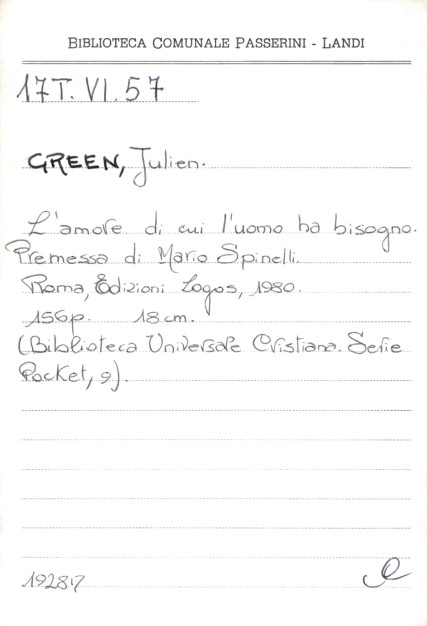 BIBLIOTECA COMUNALE PASSERINI - LANDI
17T. VI. 57
GREEN, Julien.
L'amore di cui l'uomo ha bisogno.
Premessa di Mario Spinelli.
Roma, Edizioni Logos, 1980.
156p. 18 cm.
(Biblioteca Universale Cristiana. Serie
Pocket, 9).
192817